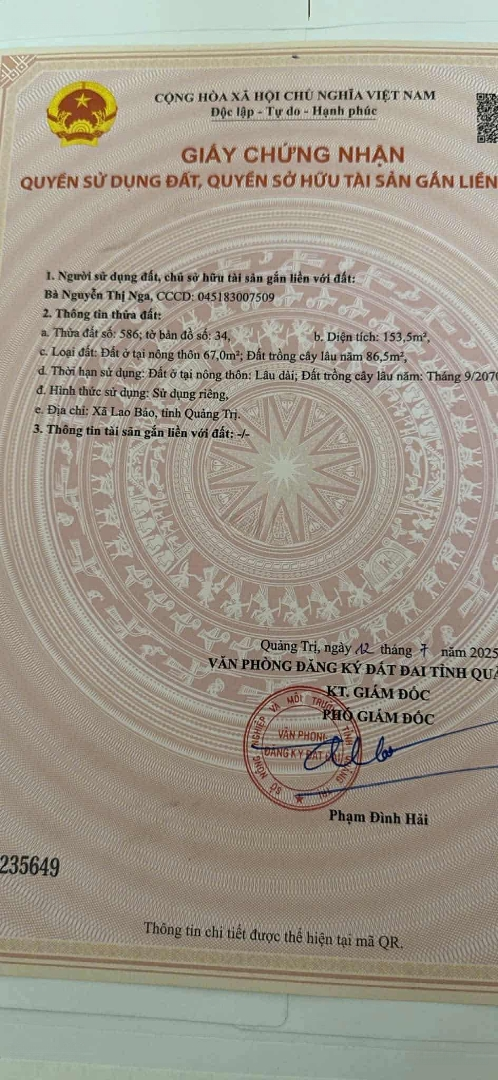 CỘNG HÒA XÃ HỘI CHỦ NGHĨA VIỆT NAM
Độc lập - Tự do - Hạnh phúc
GIẤY CHỨNG NHẬN
QUYỀN SỬ DỤNG ĐẤT, QUYỀN SỞ HỮU TÀI SẢN GẮN LIỀN
1. Người sử dụng đất, chủ sở hữu tài sản gắn liền với đất:
Bà Nguyễn Thị Nga, CCCD: 045183007509
2. Thông tin thửa đất:
a. Thửa đất số: 586; tờ bản đồ số: 34, b. Diện tích: 153,5m²,
c. Loại đất: Đất ở tại nông thôn 67,0m²; Đất trồng cây lâu năm 86,5m²,
d. Thời hạn sử dụng: Đất ở tại nông thôn: Lâu dài; Đất trồng cây lâu năm: Tháng 9/2070
đ. Hình thức sử dụng: Sử dụng riêng,
e. Địa chỉ: Xã Lao Bảo, tỉnh Quảng Trị.
3. Thông tin tài sản gắn liền với đất: -/-
Quảng Trị, ngày 12 tháng 7 năm 2025
VĂN PHÒNG ĐĂNG KÝ ĐẤT ĐAI TỈNH QUẢ
KT. GIÁM ĐỐC
PHÓ GIÁM ĐỐC
SỞ NÔNG NGHIỆP VÀ MÔI TRƯỜNG TỈNH QUẢNG TRỊ
VĂN PHÒNG
ĐĂNG KÝ ĐẤT ĐAI
Phạm Đình Hải
235649
Thông tin chi tiết được thể hiện tại mã QR.